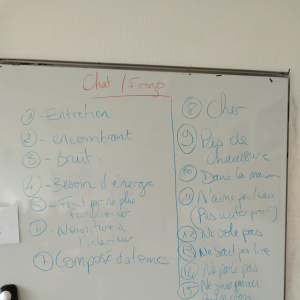 Chat / Frigo
1 - Entretien
2 - encombrant
3 - Bruit
4 - Besoin d'énergie
5 - Finit par ne plus
fonctionner
6 - Nourriture à
l'intérieur
7 Composé d'atomes
8 Cher
9 Pas de
chaussure
10 Dans la maison
11 N'aime pas l'eau
(Pas waterproof)
12 Ne vole pas
13 Ne sait pas lire
14 Ne parle pas
15 Ne joue pas au